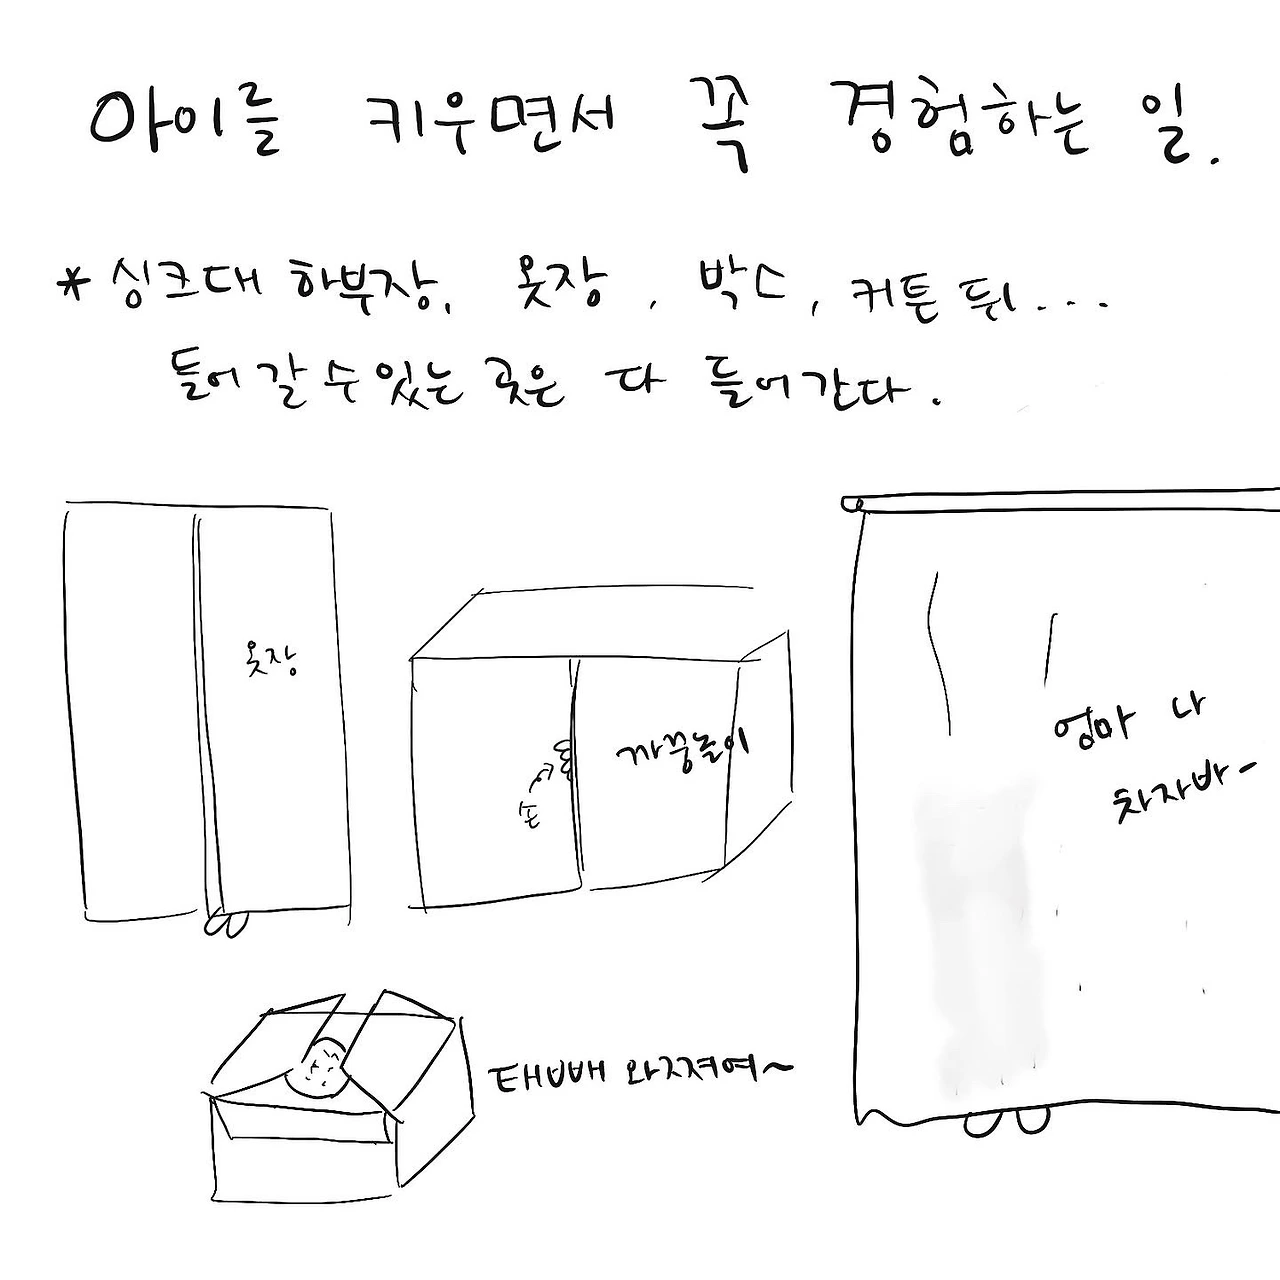 아이를 키우면서 꼭 경험하는 일.
* 싱크대 하부장, 옷장, 박스, 커튼 뒤...
들어갈 수 있는 곳은 다 들어간다.
옷장
까꿍놀이
손
엄마 나
차자바~
태빼배 와쪄여~